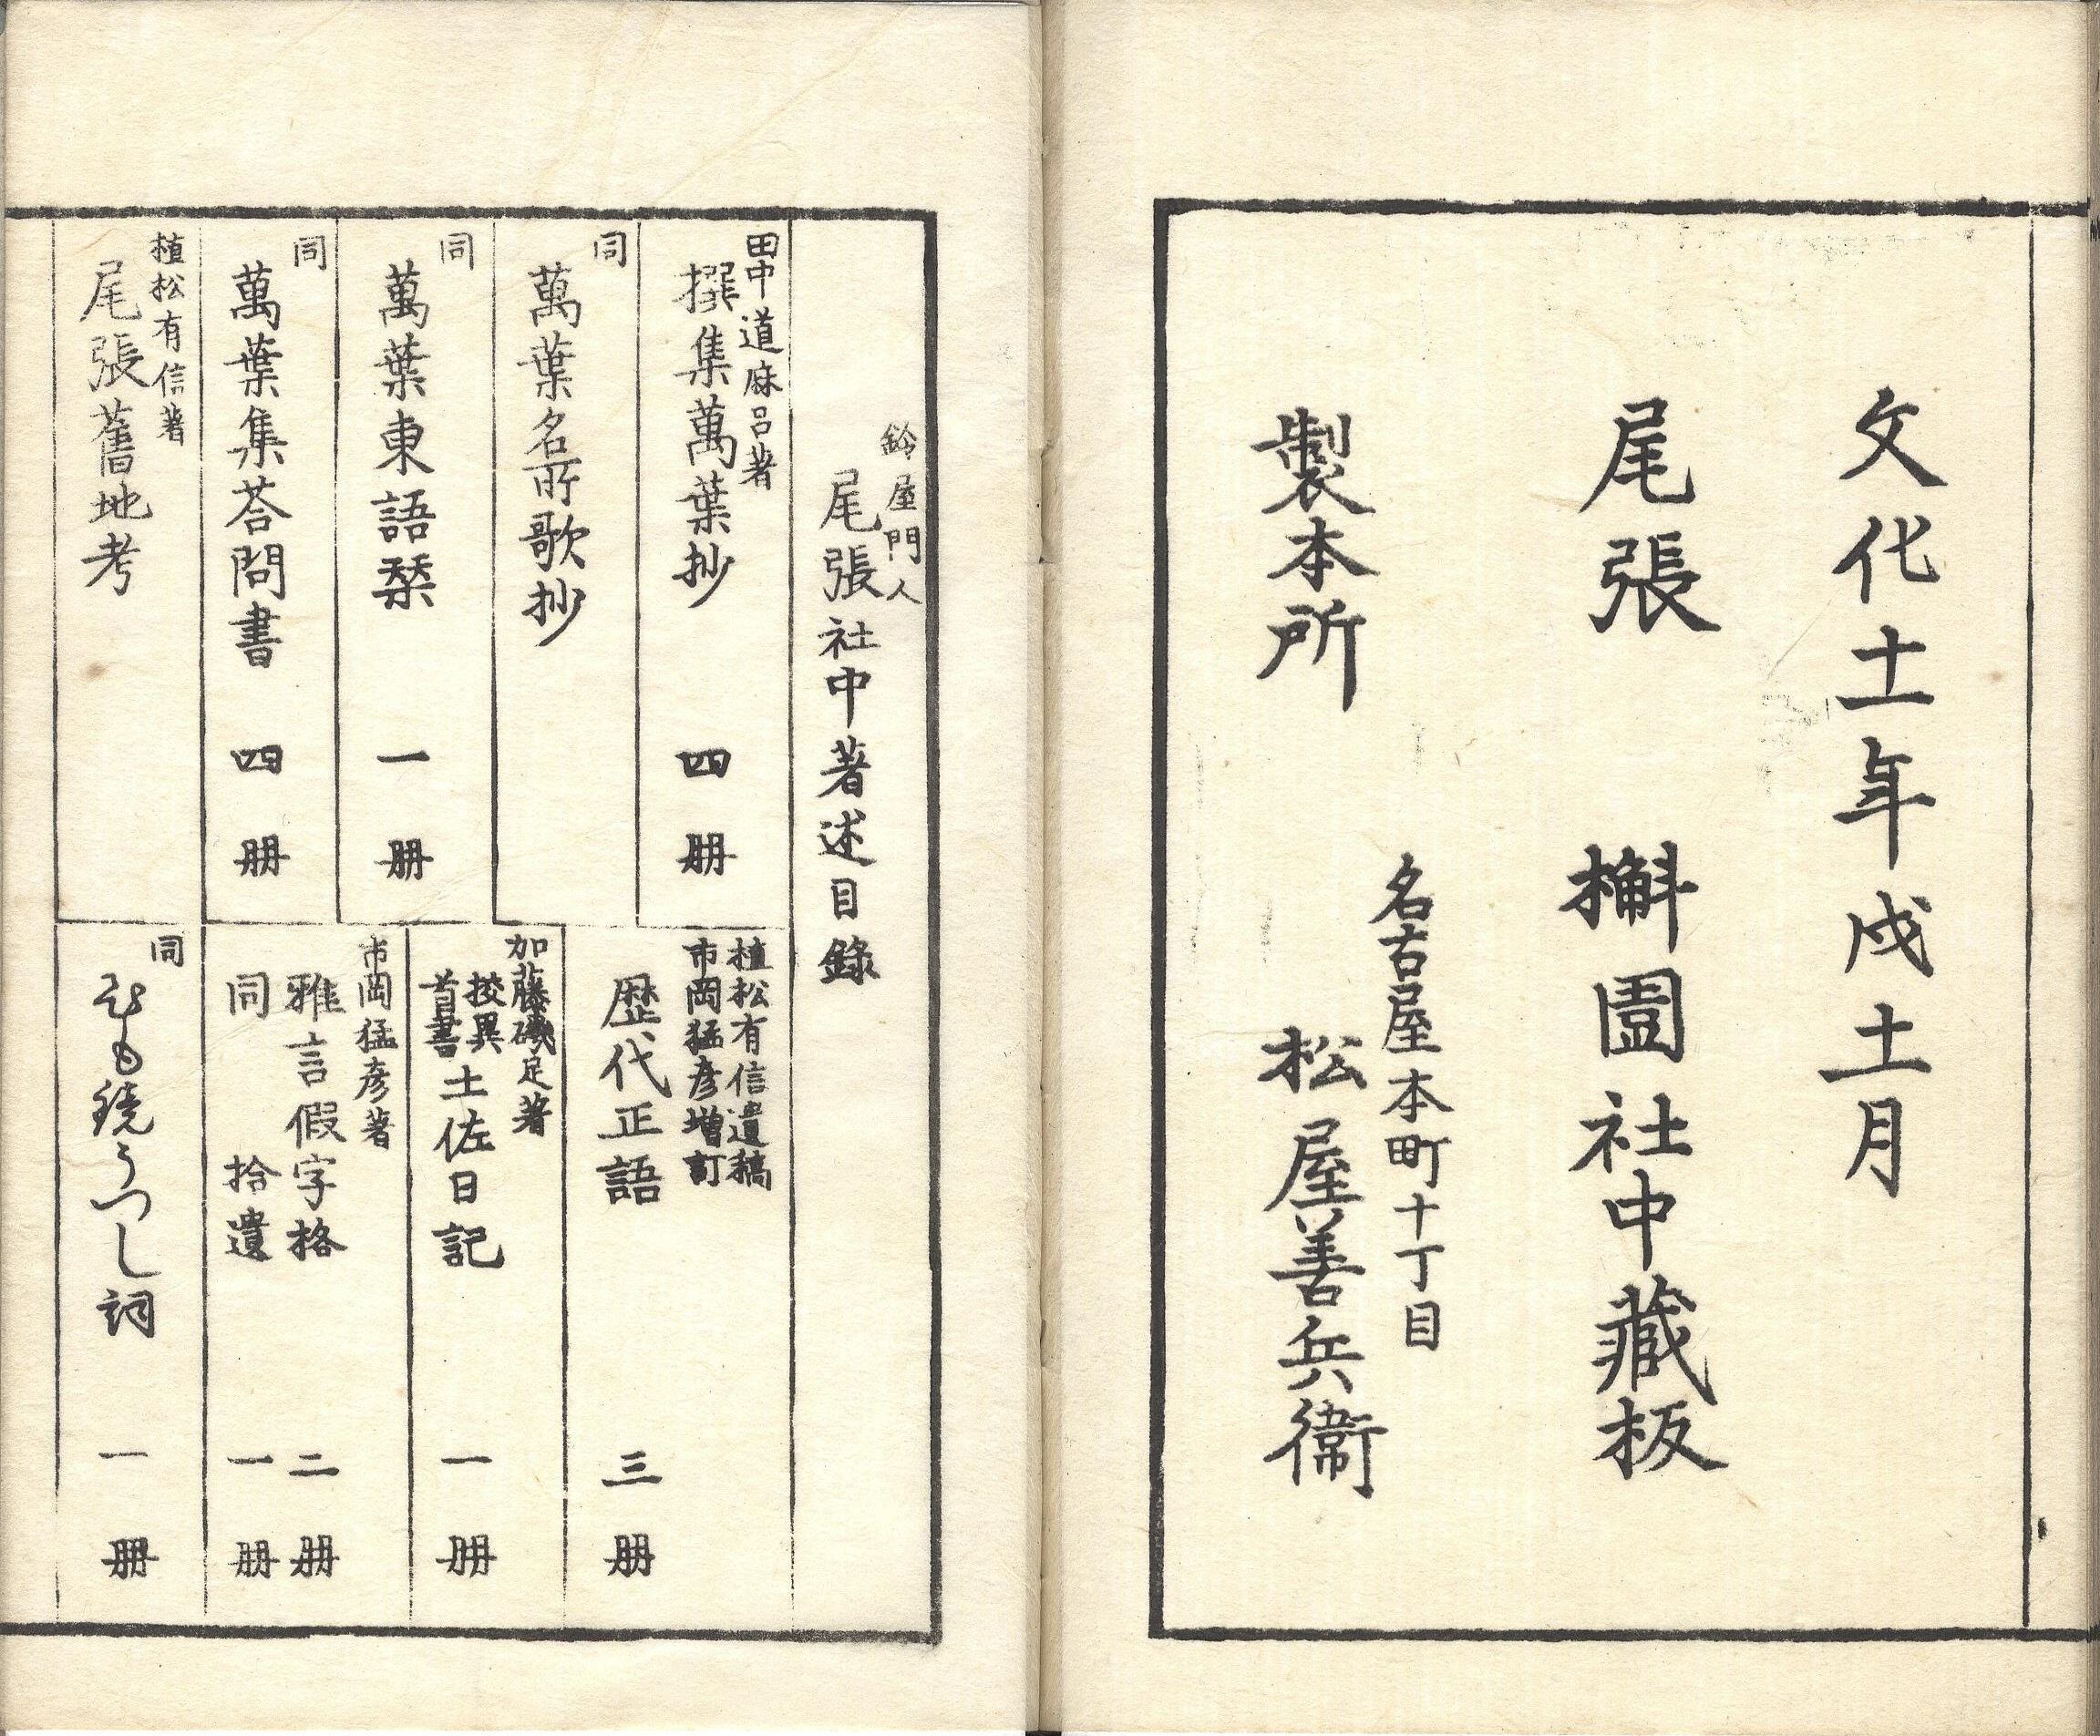 文化十一年戌十一月
尾張　槲園社中藏板
製本所
名古屋本町十丁目
松屋善兵衞
鈴屋門人
尾張社中著述目錄
田中道麻呂著
撰集萬葉抄　四册
同
萬葉名所歌抄
同
萬葉東語栞　一册
同
萬葉集荅問書　四册
植松有信著
尾張舊地考
植松有信遺稿
市岡猛彦増訂
歴代正語　三册
加藤磯足著
挍異
首書
土佐日記　一册
市岡猛彦著
雅言假字格　二册
同　拾遺　一册
同
ひも鏡うつし詞　一册